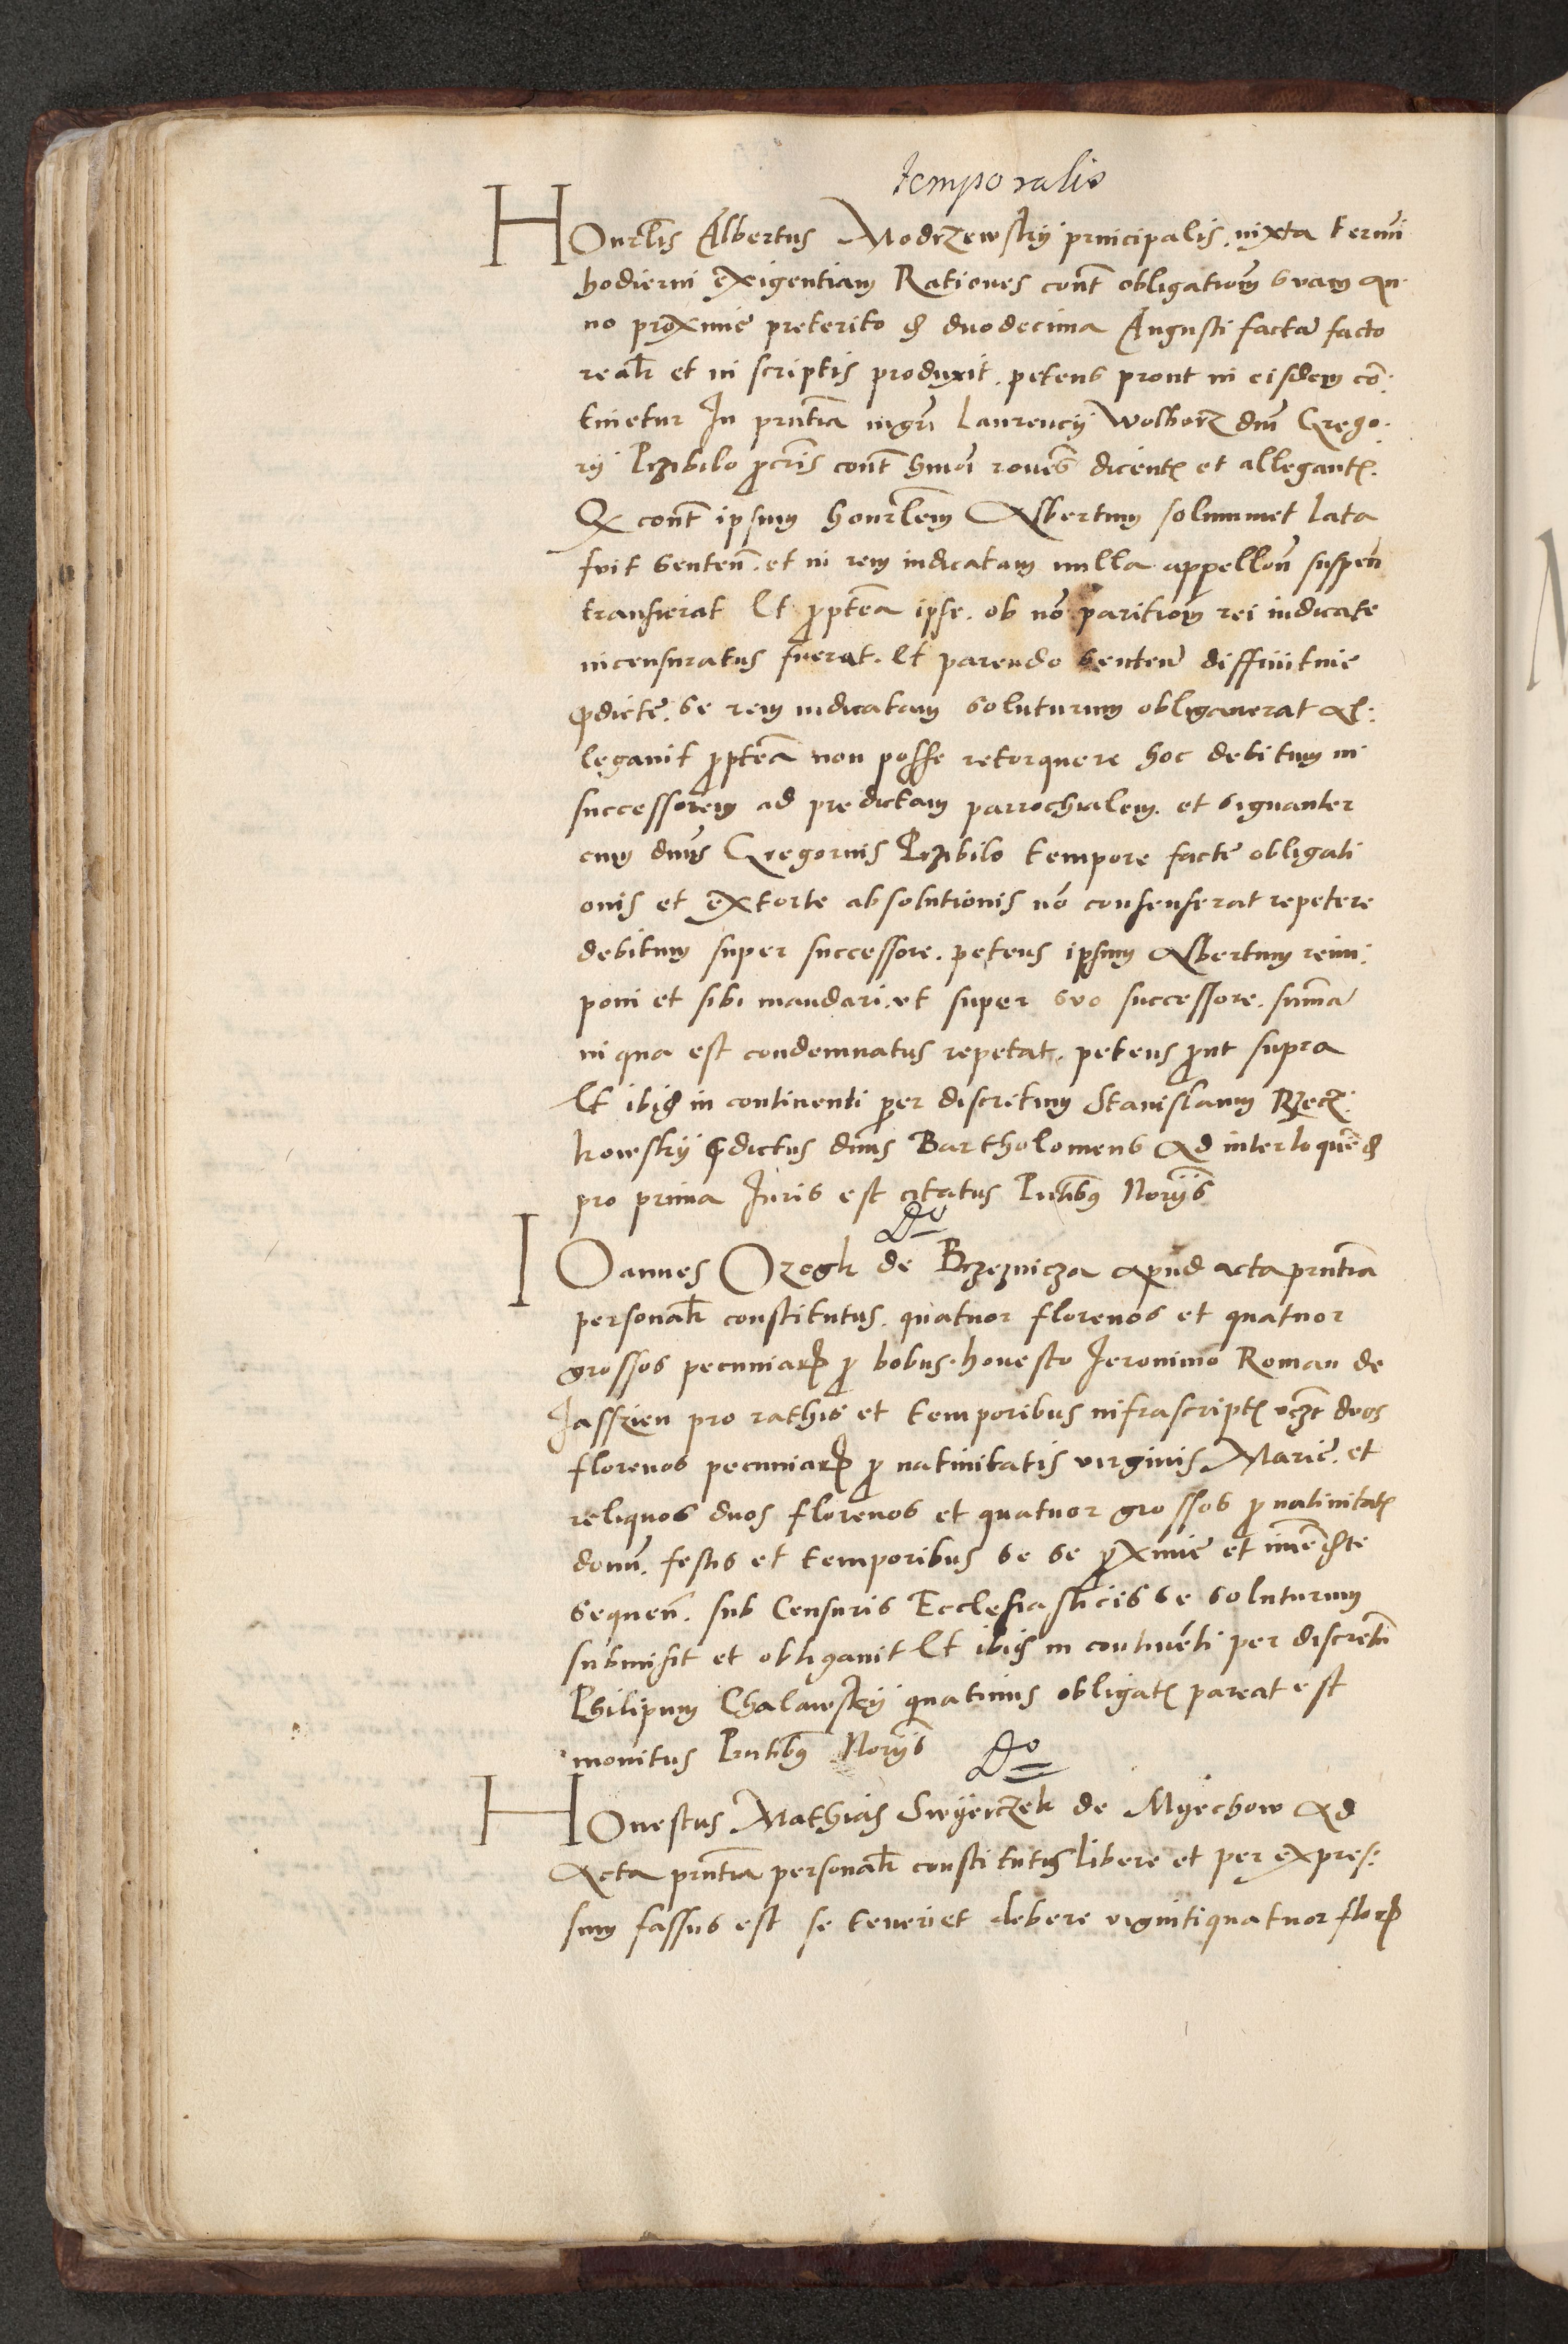 temporalis
HOnrlis Albertus Modrzewsky principalis, iuxta termi
hodierni exigentiam Rationes cont obligationem suam an-
no proxime preterito die duodecima Augusti factam facto
realr et in scriptis produxit. petens prout in eisdem con-
tinetur In pntia mgri Laurencij Wolborz dni Grego-
rij Przibilo procris cont hmoi rones dicentis et allegantis.
Q cont ipsum honrlem Albertum solummet lata
fuit senten. et in rem iudicatam nulla appellone suspen
transierat Et proptea ipse. ob no paritionem rei iudicate
incensuratus fuerat. Et parendo senten diffinitive
predicte. se rem iudicatam soluturum obligaverat Al-
legavit proptea non posse retorquere hoc debitum in
successorem ad predictam parrochialem. et signanter
cum dnus Gregorius Przibilo tempore facte obligati
onis et extorte absolutionis no consenserat repetere
debitum super successore. petens ipsum Albertum reim-
poni et sibi mandari. ut super suo successore. summa
in qua est condemnatus repetat. petens prout supra
Et ibidem in continenti per discretum Stanislaum Rzecz-
kowsky predictus dnus Bartholomeus ad interloquend
pro prima Juris est citatus Pntibus Norijs
Do
IOannes Ozogk de Brzeznicza apud acta pntia
personalr constitutus. quatuor florenos et quatuor
grossos pecuniarum pro bobus. honesto Jeronimo Roman de
Jasszien pro rathis et temporibus infrascriptis vczt duos
florenos pecuniarum pro nativitatis virginis Marie. et
reliquos duos florenos et quatuor grossos pro nativitatis
domini. festis et temporibus se se proxime et immediate
sequen. sub Censuris Ecclesiasticis se soluturum
submisit et obligavit Et ibidem in continenti per discretum
Philipum Chalawsky quatinus obligatis pareat est
monitus Pntibus Norijs Do
HOnestus Mathias Swyerczek de Myechow ad
Acta pntia personalr constitutus libere et per expres-
sum fassus est se teneri et debere vigintiquatuor florenorum